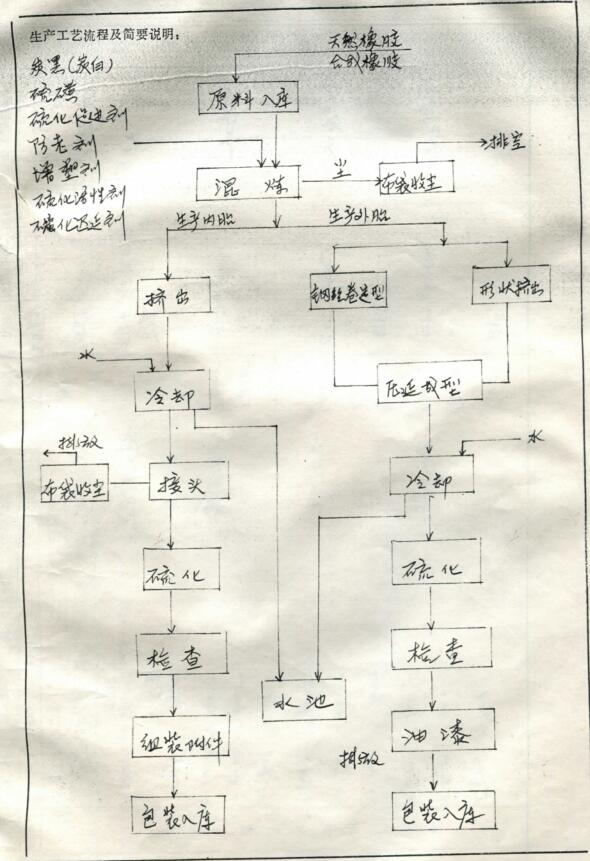 生产工艺流程及简要说明:
天然橡胶
合成橡胶
炭黑(炭白)
硫磺
硫化促进剂
防老剂
增塑剂
硫化活性剂
硫化迟延剂
原料入库
混炼
尘
布袋收尘
排空
生产内胎
生产外胎
挤出
钢丝卷造型
形状挤出
水
冷却
压延成型
水
排放
布袋收尘
接头
冷却
硫化
硫化
检查
检查
水池
组装附件
油漆
排放
包装入库
包装入库